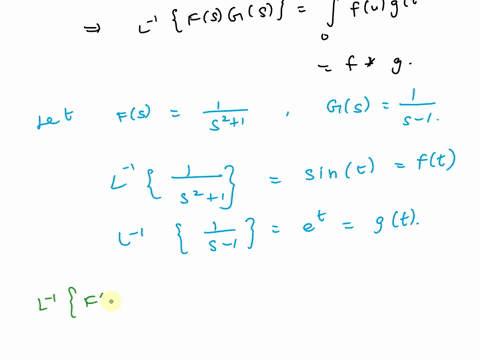 ⇒ L⁻¹ { F(s) G(s) } = ∫₀ f(u) g(t
= f * g.
Let F(s) = 1/(s²+1) , G(s) = 1/(s-1).
L⁻¹ { 1/(s²+1) } = sin(t) = f(t)
L⁻¹ { 1/(s-1) } = eᵗ = g(t).
L⁻¹ { F